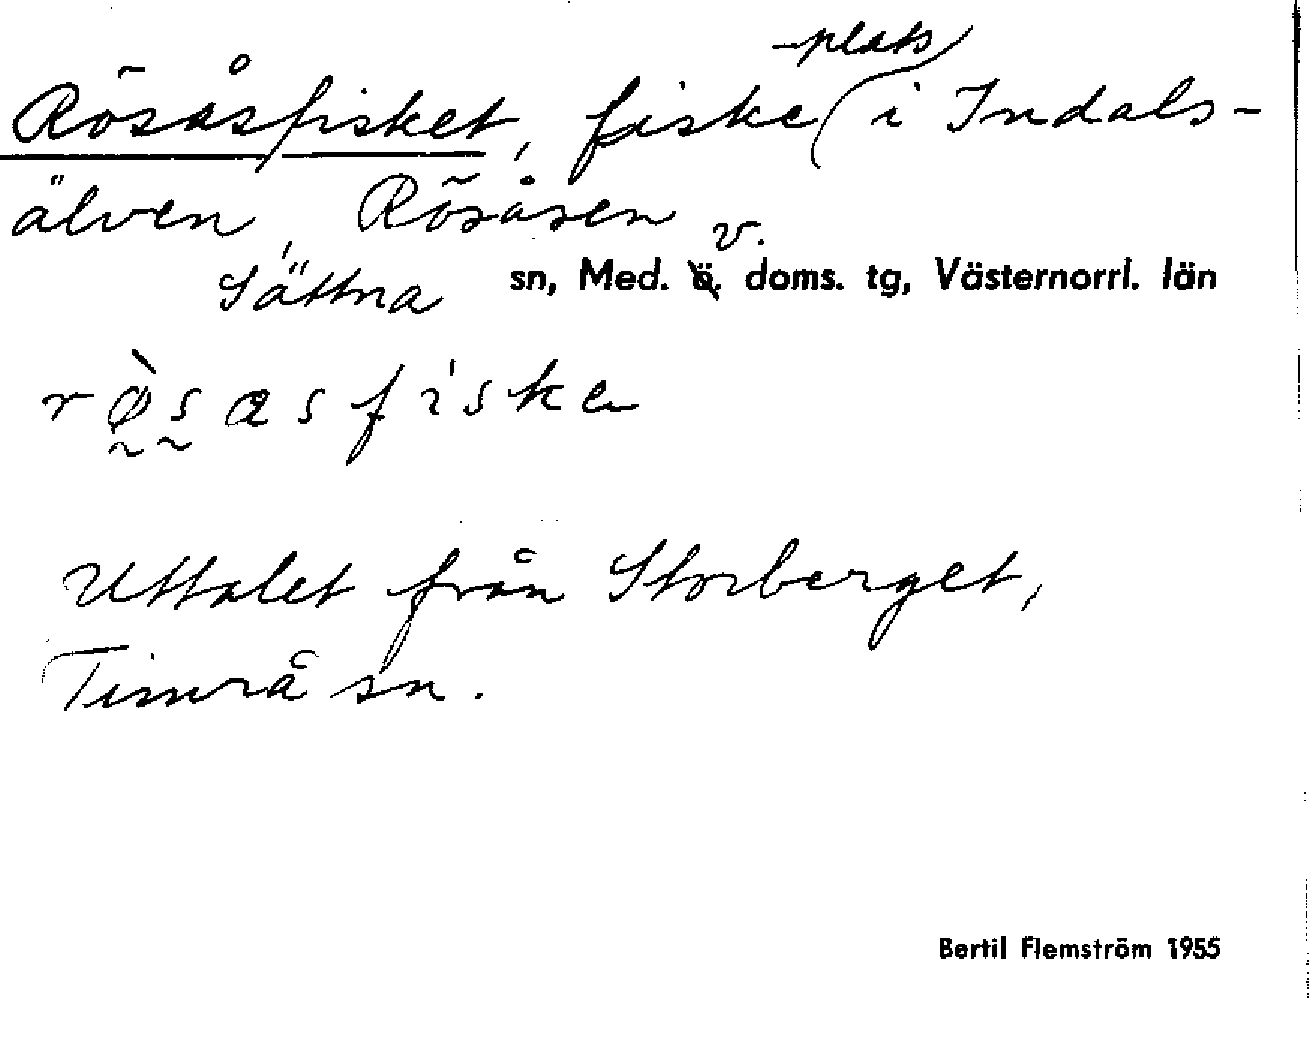 Rösåsfisket, fiskeplats i Indals-
älven, Rösåsen
Sättna sn, Med. v. doms. tg, Västernorrl. län
rø̀sasfiske
Uttalet från Storberget,
Timrå sn.
Bertil Flemström 1955